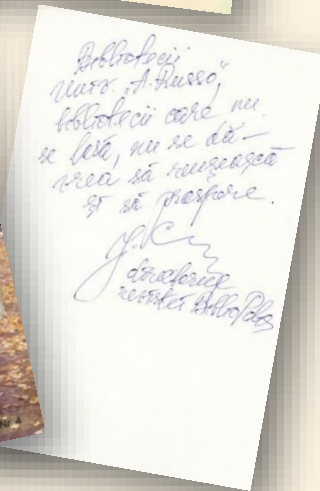 Bibliotecii
Univ. „A. Russo”,
bibliotecii care nu
se lasă, nu se dă –
vrea să reușească
și să prospere.
directorice
revistei BiblioPolis